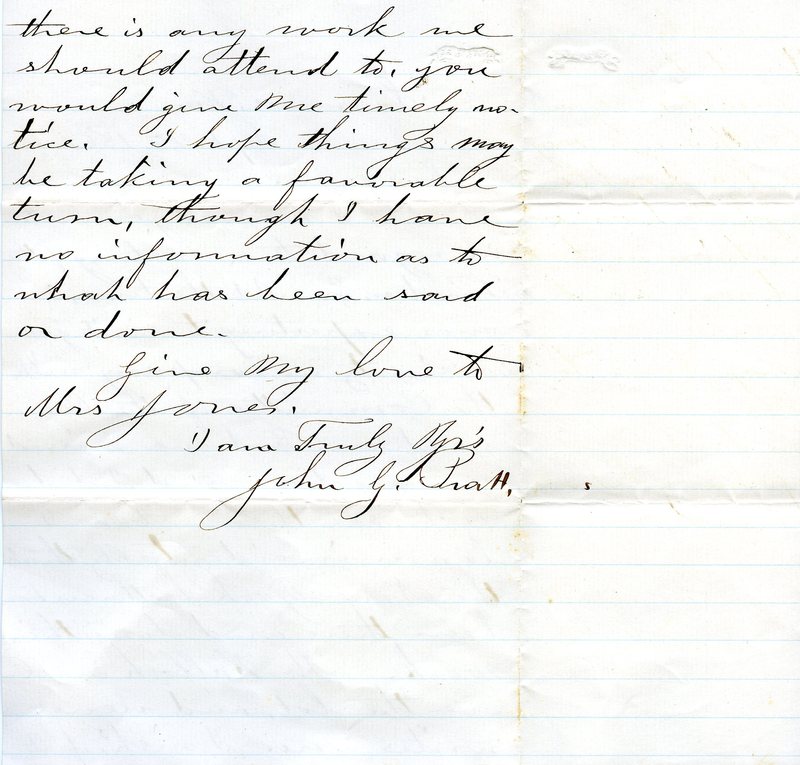 there is any work we
should attend to, you
would give me timely no-
tice. I hope things may
be taking a favorable
turn, though I have
no information as to
what has been said
or done.
Give My love to
Mrs Jones.
I am Truly Yr's
John G. Pratt.